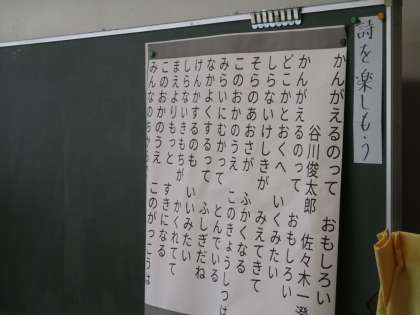 詩を楽しもう
かんがえるのって おもしろい
谷川俊太郎 佐々木一澄
かんがえるのって おもしろい
どこかとおくへ いくみたい
しらないけしきが みえてきて
そらのあおさが ふかくなる
このおかのうえ このきょうしつは
みらいにむかって とんでいる
なかよくするって ふしぎだね
けんかするのも いいみたい
しらないきもちが かくれてて
まえよりもっと すきになる
このおかのうえ このがっこうは
みんなのあ